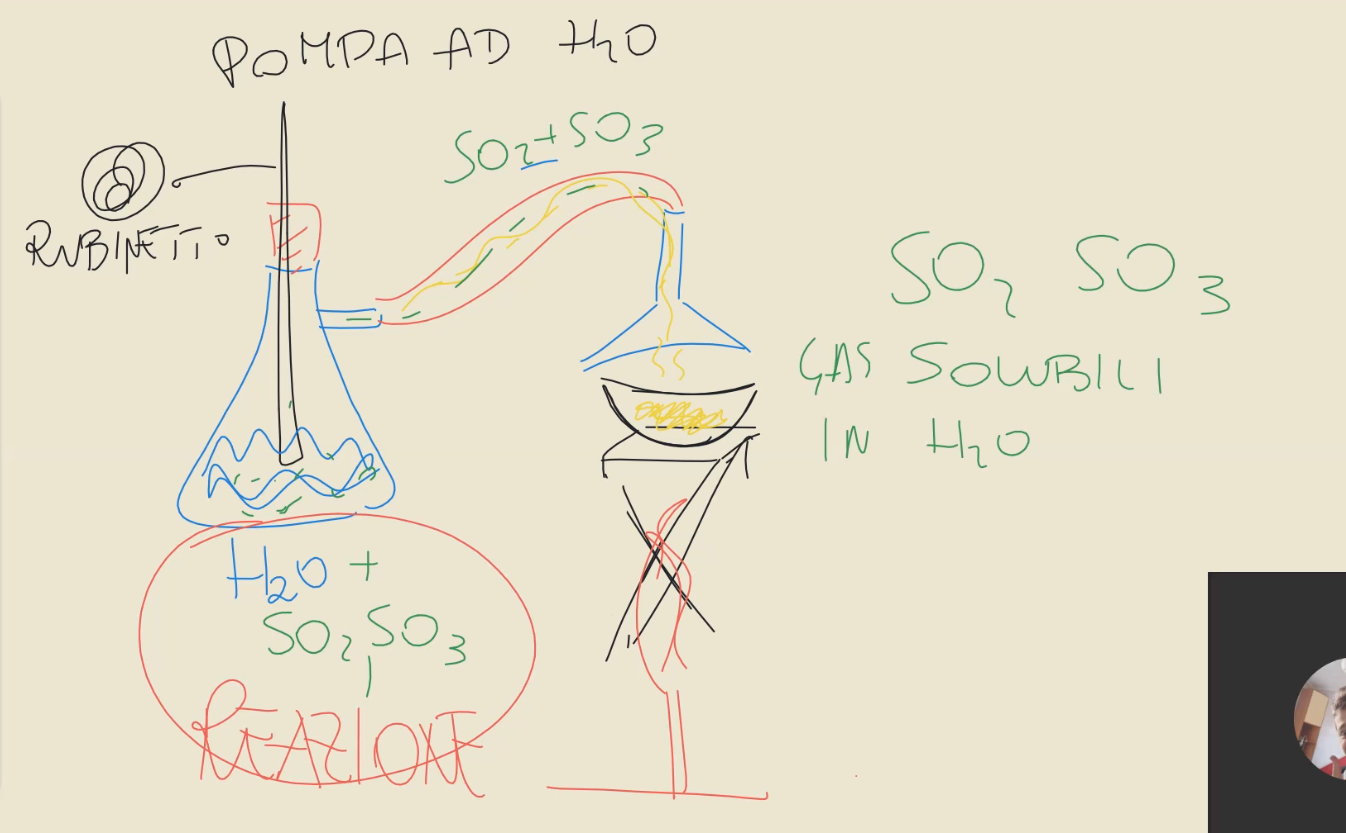 POMPA AD H₂O
SO₂+SO₃
RUBINETTO
SO₂ SO₃
GAS SOLUBILI
IN H₂O
H₂O +
SO₂, SO₃
REAZIONE